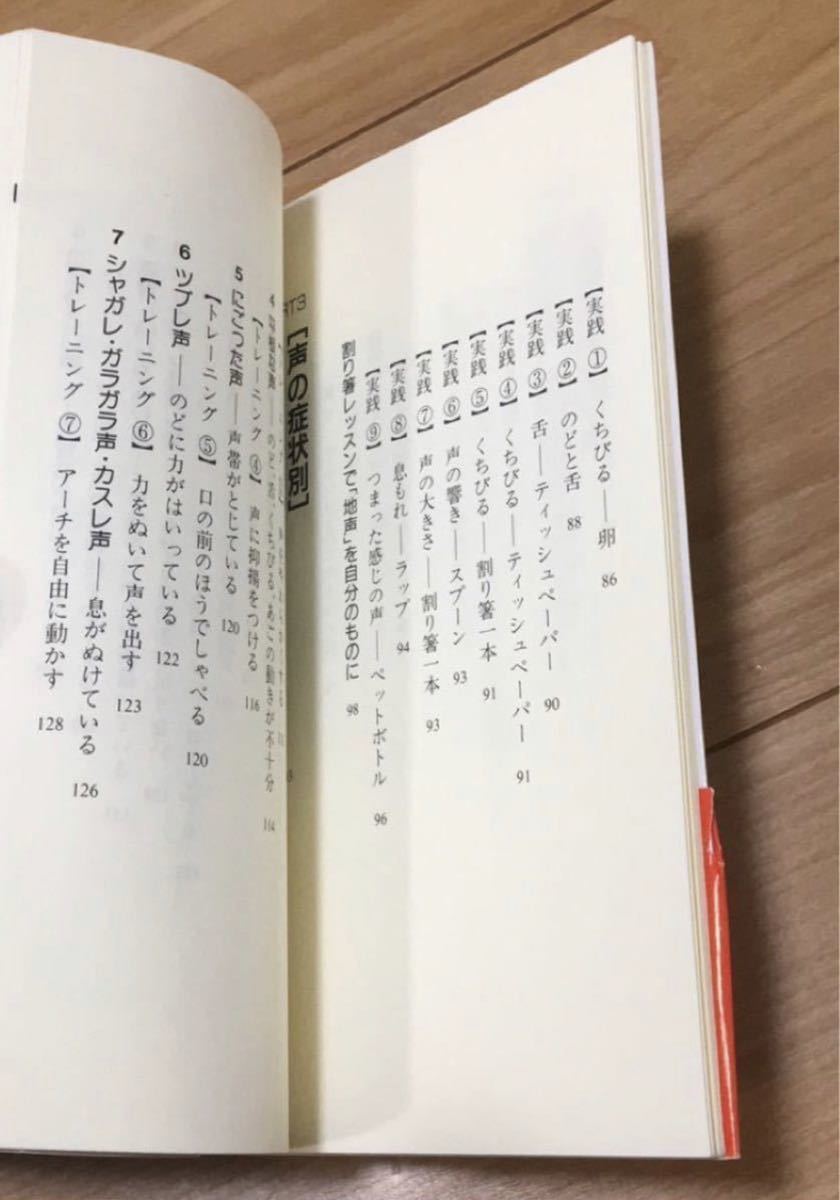 【実践 ①】 くちびる――卵 86
【実践 ②】 のどと舌 88
【実践 ③】 舌――ティッシュペーパー 90
【実践 ④】 くちびる――ティッシュペーパー 91
【実践 ⑤】 くちびる――割り箸一本 91
【実践 ⑥】 声の響き――スプーン 93
【実践 ⑦】 声の大きさ――割り箸一本 93
【実践 ⑧】 息もれ――ラップ 94
【実践 ⑨】 つまった感じの声――ペットボトル 96
割り箸レッスンで「地声」を自分のものに 98
RT3 [声の症状別]
4 ――のど、舌、くちびる、あごの動きが不十分 114
【トレーニング ④】 声に抑揚をつける 116
5 にごった声――声帯がとじている 120
【トレーニング ⑤】 口の前のほうでしゃべる 120
6 ツブレ声――のどに力がはいっている 122
【トレーニング ⑥】 力をぬいて声を出す 123
7 シャガレ・ガラガラ声・カスレ声――息がぬけている 126
【トレーニング ⑦】 アーチを自由に動かす 128